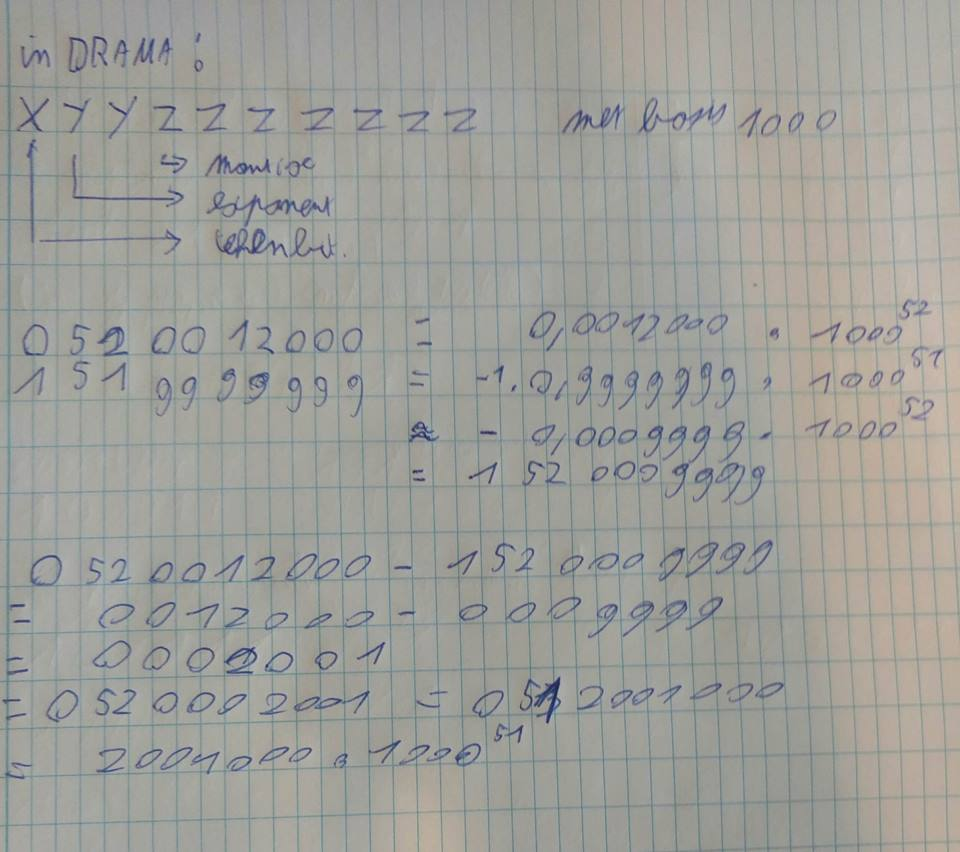 in DRAMA :
X Y Y Z Z Z Z Z Z Z met basis 1000
→ mantisse
→ exponent
→ tekenbit.
0 52 0012000 = 0,0012000 · 1000^52
1 51 9999999 = -1. 0,9999999 · 1000^51
≈ - 0,0009999 · 1000^52
= 1 52 0009999
0 52 0012000 - 1 52 0009999
= 0012000 - 0009999
= 0002001
= 0 52 0002001 = 0 51 2001000
= 2001000 · 1000^51